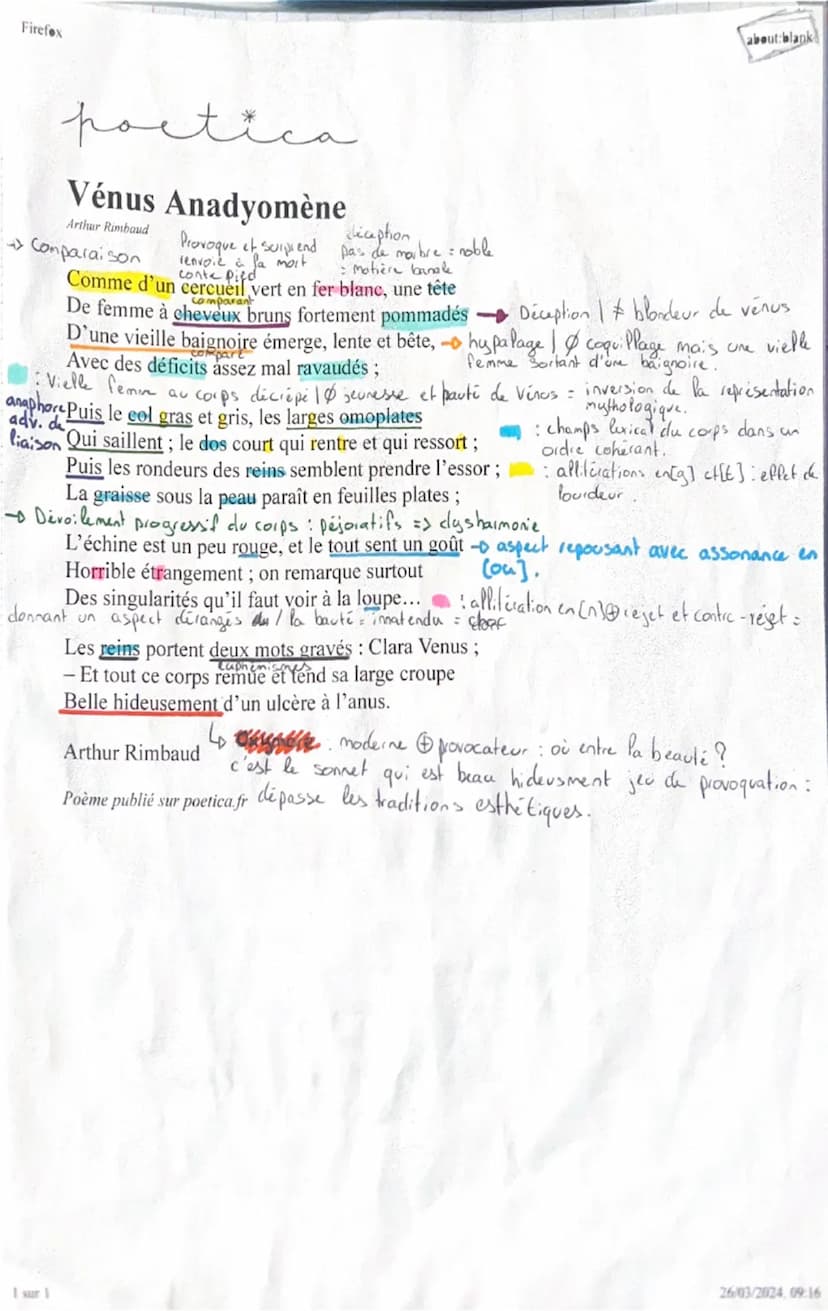 Firefox
about:blank
poetica
Vénus Anadyomène
Arthur Rimbaud
→ Comparaison
Provoque et surprend
renvoie à la mort
contre pied
déception
pas de marbre = noble
= matière banale
Comme d'un cercueil vert en fer blanc, une tête
comparant
De femme à cheveux bruns fortement pommadés → Déception / ≠ blondeur de vénus
D'une vieille baignoire émerge, lente et bête, → hypalage / Ø coquillage mais une vielle
femme sortant d'une baignoire.
comparé
Avec des déficits assez mal ravaudés ;
: Vielle femme au corps décrépi / Ø jeunesse et bauté de Vénus = inversion de la représentation
mythologique.
anaphore
adv. de
liaison
Puis le col gras et gris, les larges omoplates
: champs lexical du corps dans un
ordre cohérant.
Qui saillent ; le dos court qui rentre et qui ressort ;
Puis les rondeurs des reins semblent prendre l'essor ; : allitérations en [g] et [t] : effet de
lourdeur.
La graisse sous la peau paraît en feuilles plates ;
→ Dévoilement progressif du corps : péjoratifs => dysharmonie
L'échine est un peu rouge, et le tout sent un goût → aspect repousant avec assonance en
[ou].
Horrible étrangement ; on remarque surtout
Des singularités qu'il faut voir à la loupe... : allitération en [r] ⊕ rejet et contre-rejet =
donnant un aspect dérangés / la bauté = innatendu = choc
Les reins portent deux mots gravés : Clara Venus ;
euphémismes
– Et tout ce corps remue et tend sa large croupe
Belle hideusement d'un ulcère à l'anus.
: moderne ⊕ provocateur : où entre la beauté ?
Arthur Rimbaud
c'est le sonnet qui est beau hideusment jeu de provoquation :
Poème publié sur poetica.fr
dépasse les traditions esthétiques.
1 sur 1
26/03/2024, 09:16